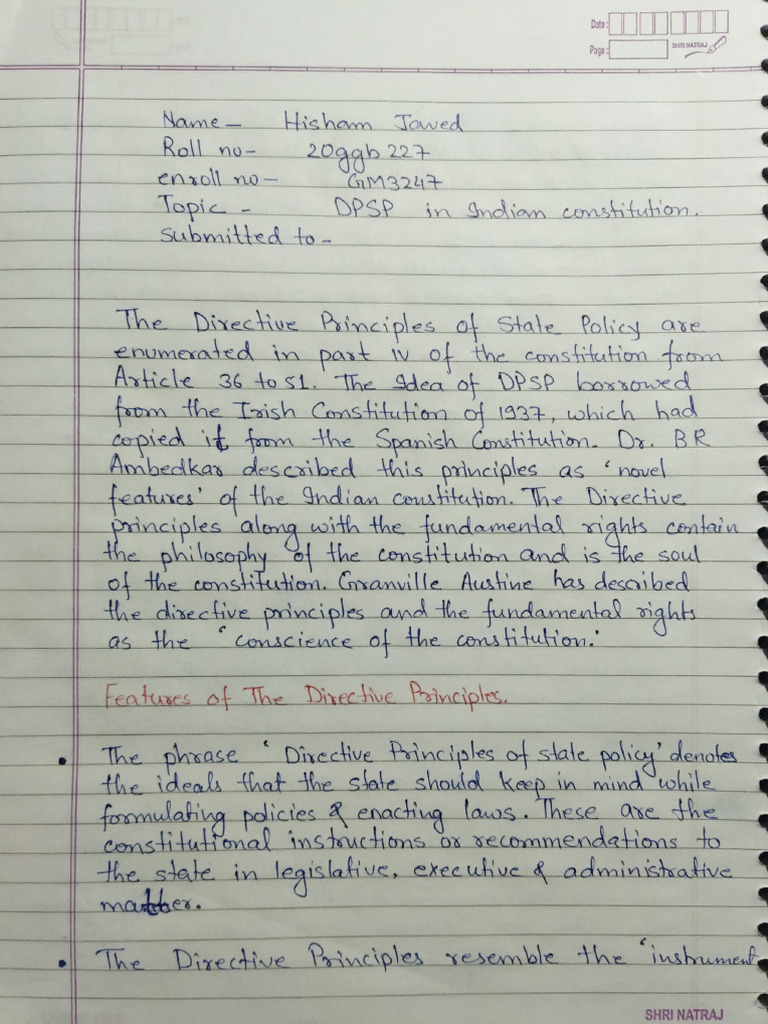 Date:
Page:
SHRI NATRAJ
Name - Hisham Jawed
Roll no - 20ggb 227
enroll no - GM3247
Topic - DPSP in Indian constitution.
Submitted to -
The Directive Principles of State Policy are
enumerated in part IV of the constitution from
Article 36 to 51. The Idea of DPSP borrowed
from the Irish Constitution of 1937, which had
copied it from the Spanish Constitution. Dr. BR
Ambedkar described this principles as 'novel
features' of the Indian constitution. The Directive
principles along with the fundamental rights contain
the philosophy of the constitution and is the soul
of the constitution. Granville Austine has described
the directive principles and the fundamental rights
as the 'conscience of the constitution.'
Features of The Directive Principles.
• The phrase 'Directive Principles of state policy' denotes
the ideals that the state should keep in mind while
formulating policies & enacting laws. These are the
constitutional instructions or recommendations to
the state in legislative, executive & administrative
matter.
• The Directive Principles resemble the 'instrument
SHRI NATRAJ